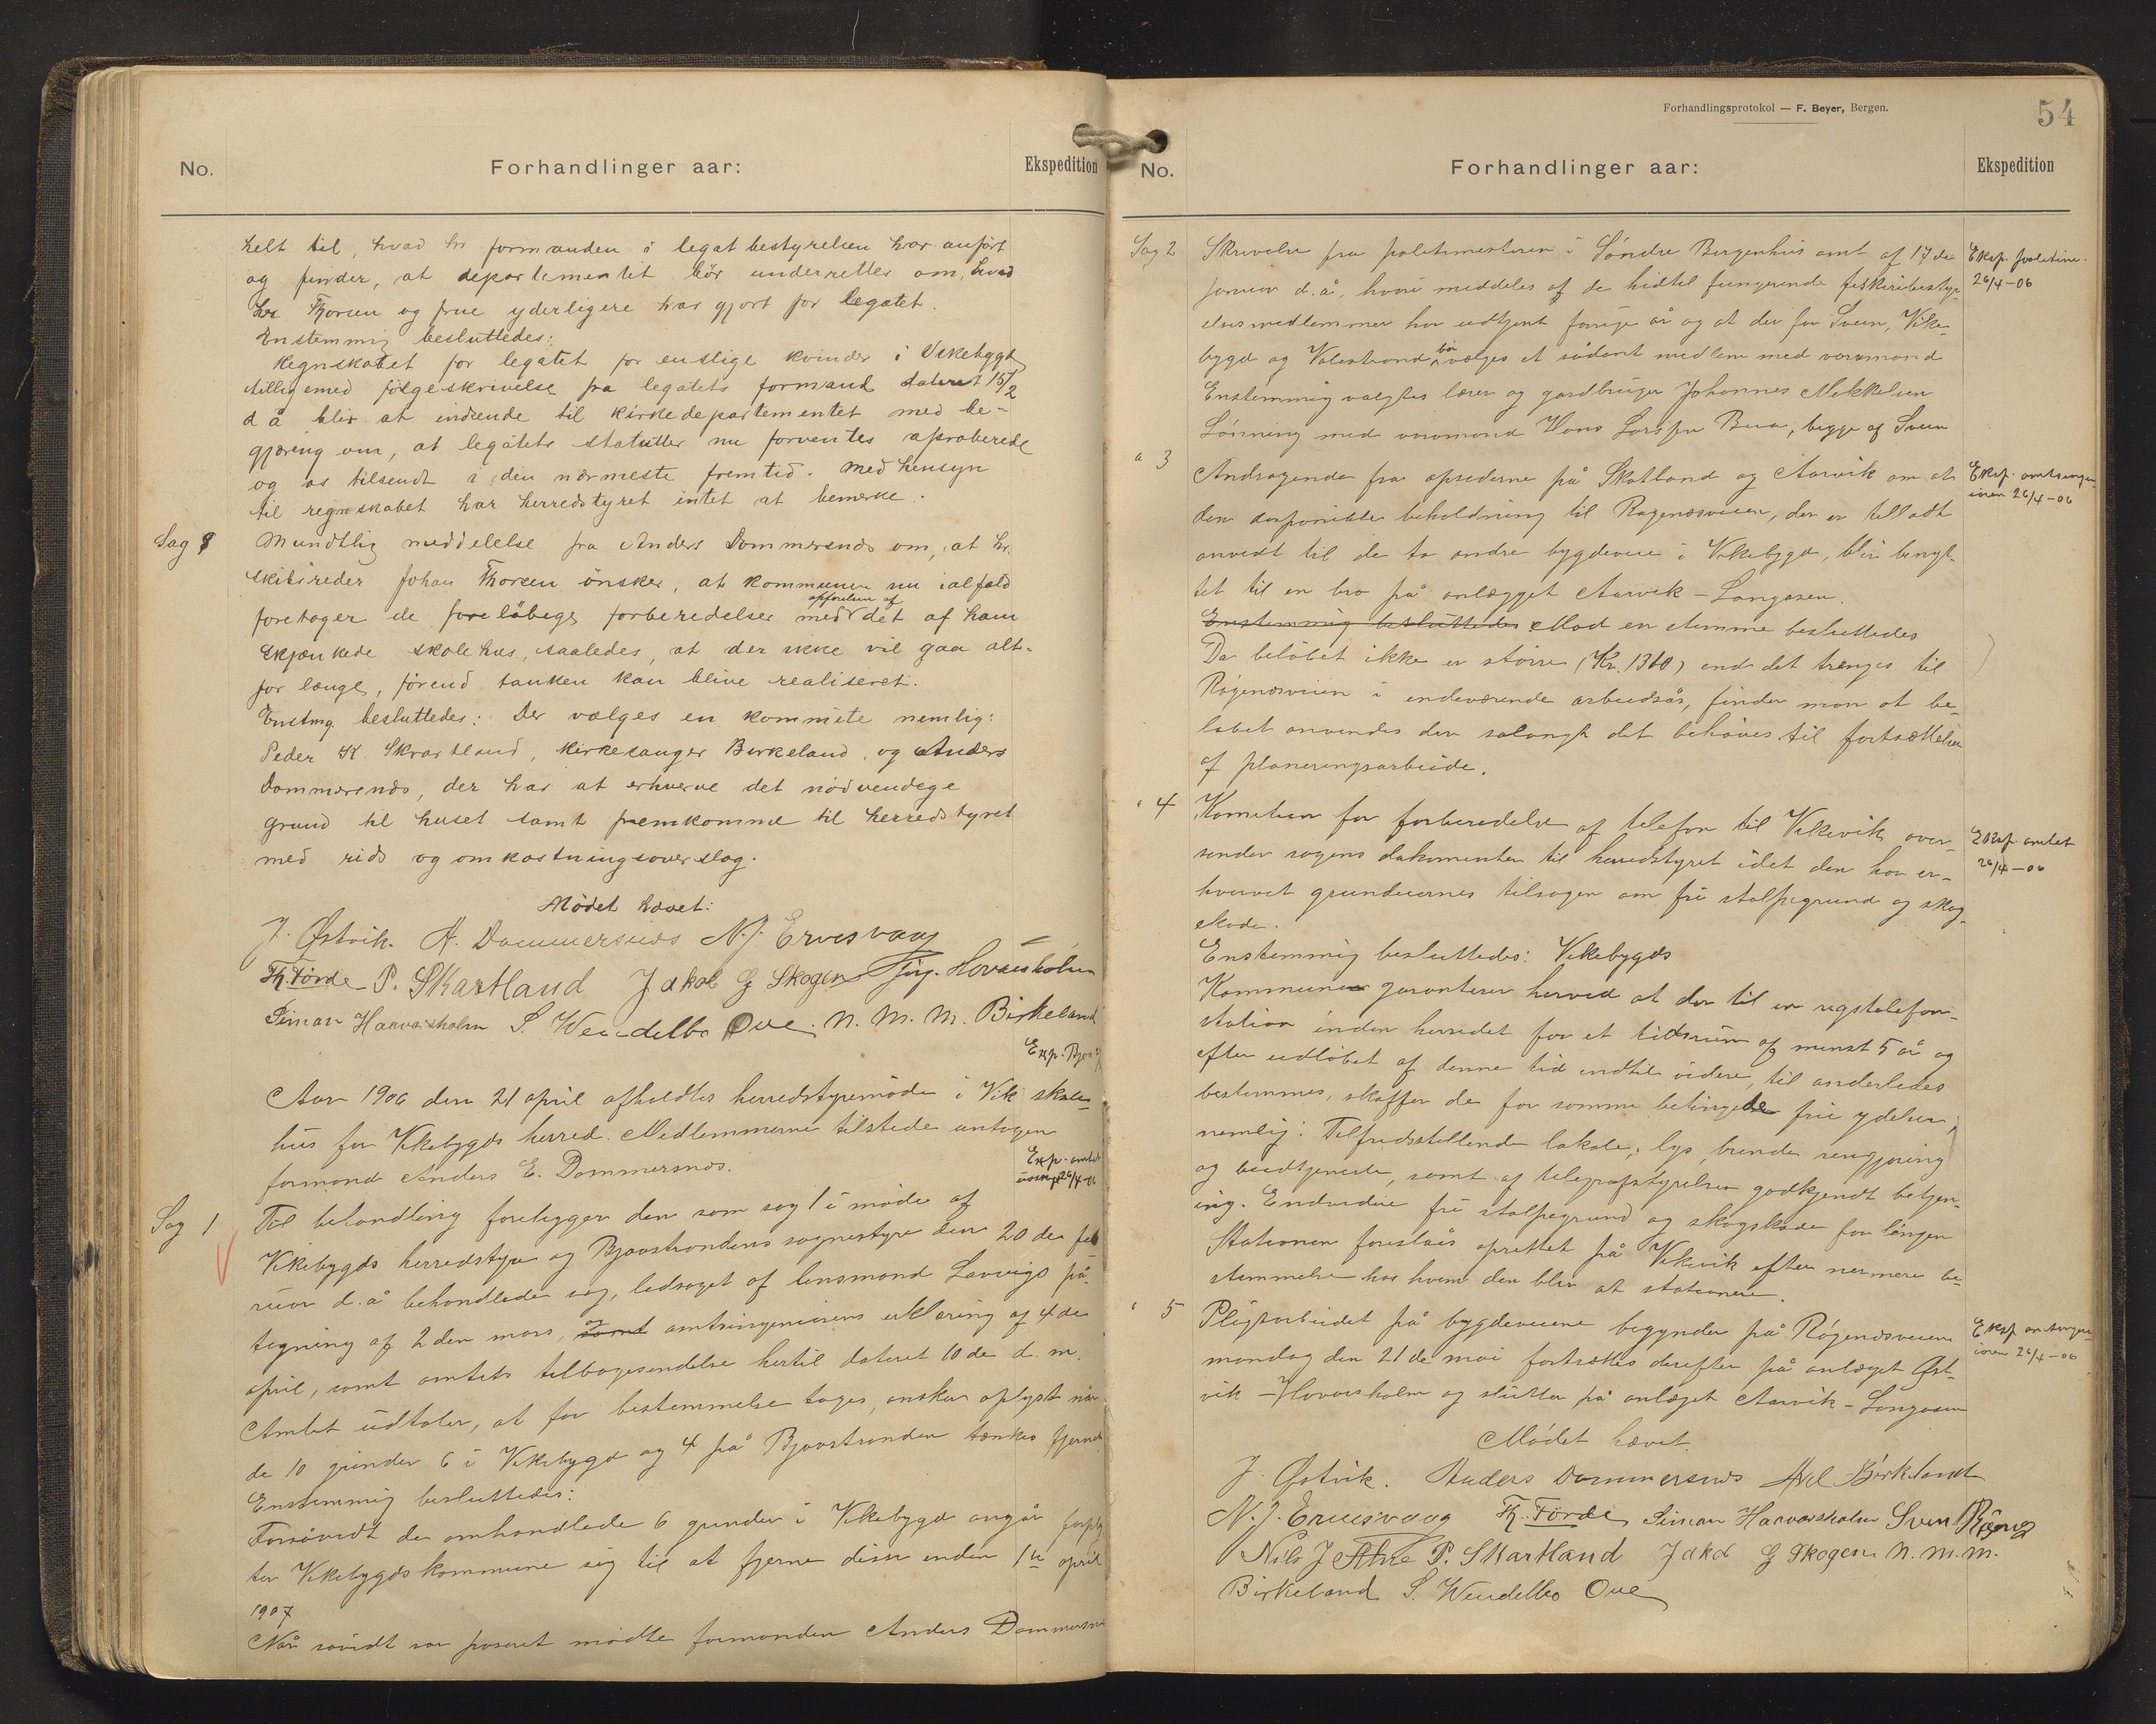 No.
Forhandlinger aar:
Ekspedition
helt til, hvad hr formanden i legatbestyrelsen har anført
og finder, at departementet bør underrettes om, hvad
hr Thorsen og frue yderligere har gjort for legatet.
Enstemmig besluttedes:
Regnskabet for legatet for enslige kvinder i Vikebygd
tilligemed følgeskrivelse fra legatets formand dateret 15/2
d å blir at indsende til kirkedepartementet med be-
gjæring om, at legatets statutter nu forventes aproberede
og os tilsendt i den nærmeste fremtid. Med hensyn
til regnskabet har herredstyret intet at bemerke.
Sag 8
Mundtlig meddelelse fra Anders Dommersnes om, at hr.
skibsreder Johan Thorsen ønsker, at kommunen nu ialfald
foretager de foreløbige forberedelser med opførelsen af det af ham
skjænkede skolehus, saaledes, at der ikke vil gaa alt-
for længe, førend tanken kan blive realiseret.
Enstmg. besluttedes: Der vælges en kommite nemlig:
Peder K. Skartland, kirkesanger Birkeland, og Anders
Dommersnes, der har at erhverve det nødvendige
grund til huset samt fremkomme til herredstyret
med rids og omkostningsoverslag.
Mødet hævet:
J. Østvik. A. Dommersnes N.J. Ervesvaag
Th. Førde P. Skartland Jakob G Skogen Jörg. Hovaisholm
Simon Haavaisholm S. Wendelbo Ove. N. M. M. Birkeland
Exp. Bjoa
Aar 1906 den 21 april afholdtes herredstyremøde i Vik skole-
hus for Vikebygds herred. Medlemmerne tilstede untagen
formand Anders E. Dommersnes.
Exp. amtet
26/4-06
Sag 1
Til behandling foreligger den som sag 1 i møde af
Vikebygds herredstyre og Bjoastrandens sognestyre den 20 de feb
ruar d. å behandlede sag, ledsaget af lensmand Larvigs på-
tegning af 2 den mars, samt og amtsingeniørens erklæring af 4 de
april, samt amtets tilbagesendelse hertil dateret 10 de d. m.
Amtet udtaler, at før bestemmelse tages, ønskes oplyst når
de 10 grinder 6 i Vikebygd og 4 på Bjoastranden tænkes fjernet
Enstemmig besluttedes:
Forsåvidt de omhandlede 6 grinder i Vikebygd angår forplig
ter Vikebygds kommune sig til at fjerne disse inden 1ste april
1907
Når såvidt var passeret mødte formanden Anders Dommersnes
Forhandlingsprotokol — F. Beyer, Bergen.
54
No.
Forhandlinger aar:
Ekspedition
Sag 2
Skrivelse fra politimesteren i Søndre Bergenhus amt af 17 de
januar d. å, hvori meddeles af de hidtil fungerende fiskeribestyr-
elsesmedlemmer har udtjent forrige år og at der for Sveen, Vike-
bygd og Valestrand bør vælges et sådant medlem med varamand
Enstemmig valgtes lærer og gardbruger Johannes Mikkelsen
Lønning med varamand Hans Larssen Bua, begge af Sveen
Eksp. politim.
26/4-06
" 3
Andragende fra opsederne på Skatland og Aarvik om at
den disponible beholdning til Røgenæsveien, der er tilladt
anvendt til de to andre bygdeveie i Vikebygd, blir benyt-
tet til en bro på anlægget Aarvik – Langåsen.
Enstemmig besluttedes Mod en stemme besluttedes
Da beløbet ikke er større (Kr. 1360) end det trænges til
Røgenæsveien i indeværende arbeidsår, finder man at be-
løbet anvendes der sålangt det behøves til fortsættelsen
af planeringsarbeide.
Eksp. amtsingen-
iøren 26/4-06
" 4
Komiteen for forberedelse af telefon til Vikevik over-
sender sagens dokumenter til herredstyret idet den har er-
hvervet grundeiernes tilsagn om fri stolpegrund og skog-
skade.
Enstemmig besluttedes: Vikebygds
Kommune garanterer herved at der til en rigstelefon-
station inden herredet for et tidsrum af minst 5 år og
efter udløbet af denne tid indtil videre, til anderledes
bestemmes, skaffes de for samme betingede frie ydelser,
nemlig: Tilfredsstillende lokale, lys, brænde rengjøring
og budtjeneste, samt af telegrafstyrelsen godkjendt betjen-
ing. Endvidere fri stolpegrund og skogskade for linjen
Stationen foreslåes oprettet på Vikevik efter nærmere be-
stemmelse hos hvem den blir at stationere.
Eksp. amtet
26/4-06
" 5
Pligtarbeidet på bygdeveiene begynder på Røgenæsveien
mandag den 21 de mai fortsættes derefter på anlæget Øst-
vik – Hovaisholm og slutter på anlæget Aarvik – Langåsen
Eksp amtsingen-
iøren 26/4-06
Mødet hævet.
J. Østvik. Anders Dommersnes Axel Birkeland
N.J. Ervesvaag Th. Førde Simon Haavaisholm Sven Røgnes
Nils J P. Skartland Jakob G Skogen N. M. M.
Birkeland S. Wendelbo Ove